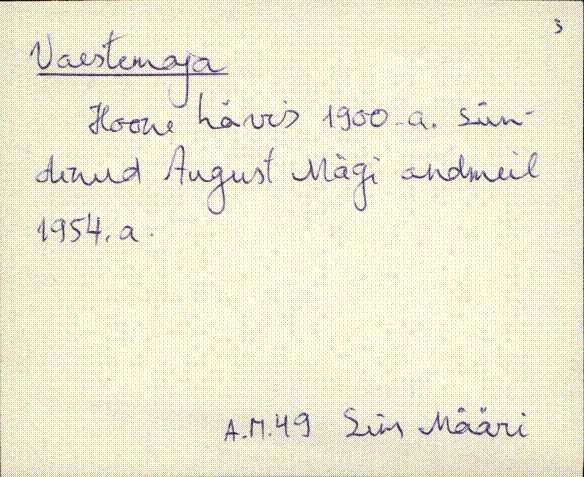 3
Vaestemaja
Hoone hävis 1900-a. sün-
dinud August Mägi andmeil
1954. a.
A.M.49 Siim Määri